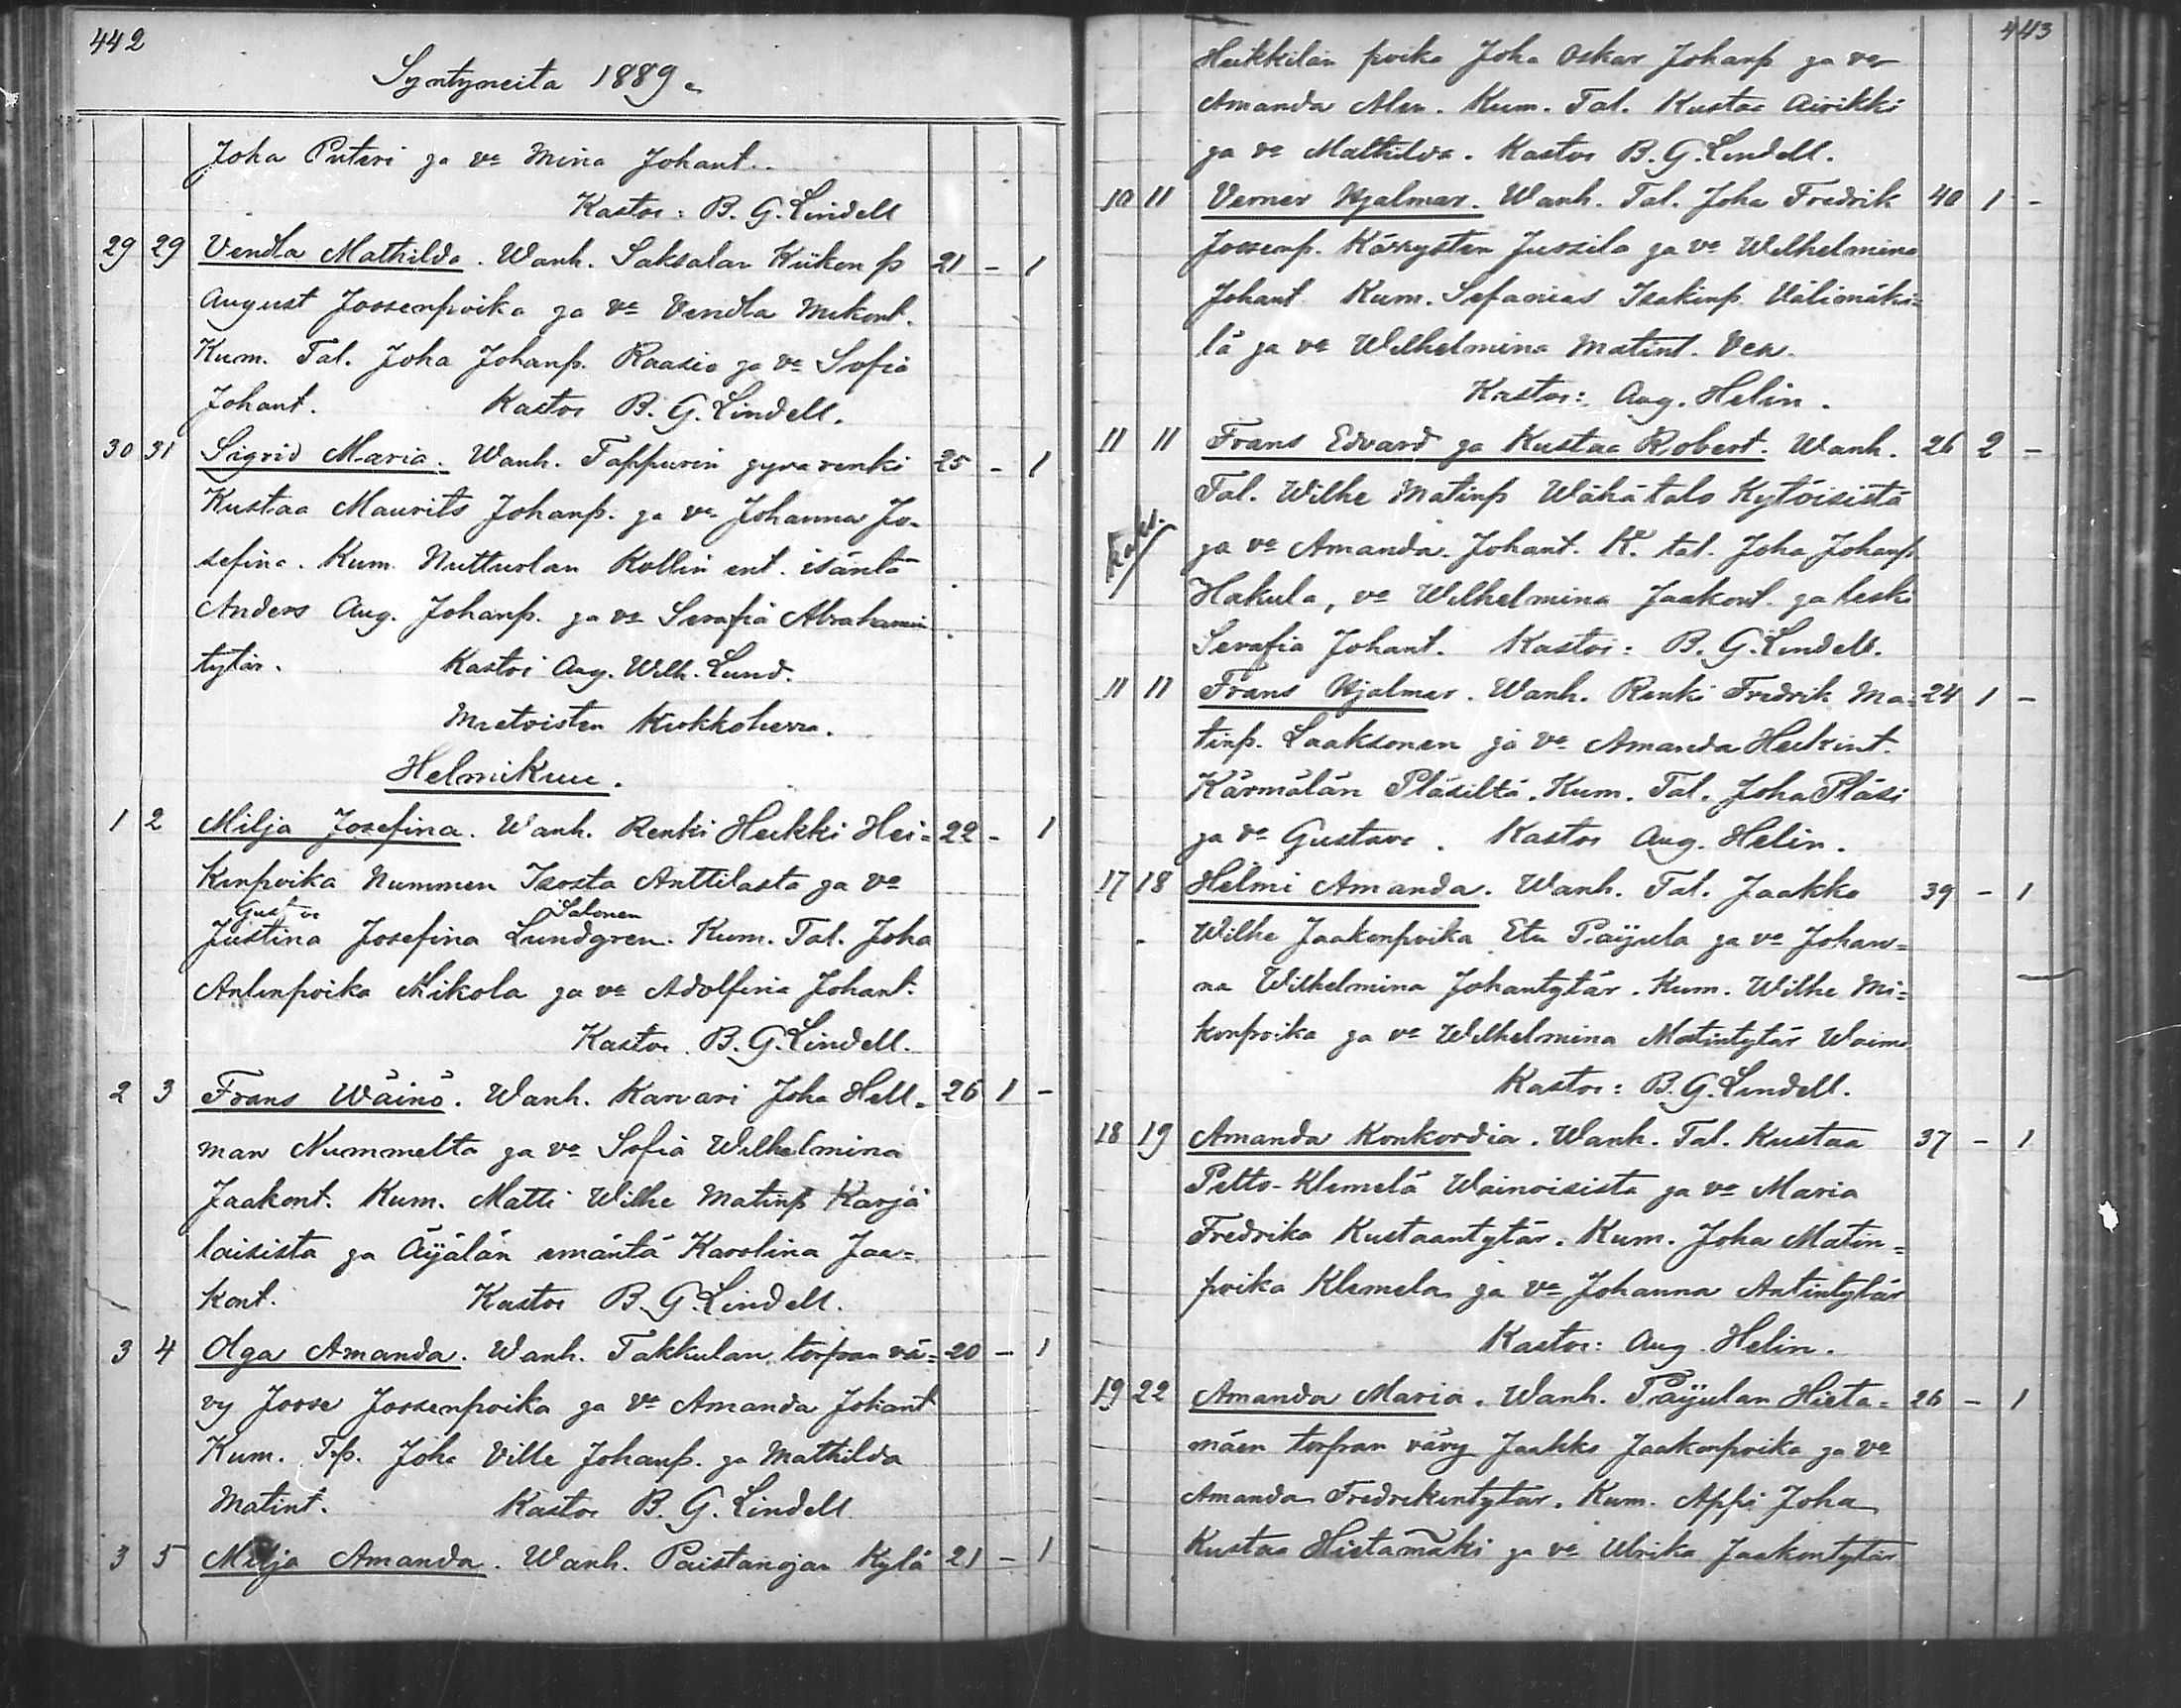 442
Syntyneitä 1889.
Joha Puteri ja vo Mina Johant.
Kastoi: B. G. Lindell
29 29 Vendla Mathilda. Wanh. Saksalan Kiikon p 21 - 1
August Joosenpoika ja vo Vendla Mikont.
Kum. Tal. Joha Johanp. Raasio ja vo Sofia
Johant. Kastoi B. G. Lindell.
30 31 Sigrid Maria. Wanh. Tappurin jyvärenki 25 - 1
Kustaa Maurits Johanp. ja vo Johanna Jo-
sefina. Kum. Nutturlan Kollin ent. isäntä
Anders Aug. Johanp. ja vo Serafia Abrahamin
tytär. Kastoi Aug. Wilh. Lund.
Mietoisten Kirkkoherra.
Helmikuu.
1 2 Milja Josefina. Wanh. Renki Heikki Hei= 22 - 1
kinpoika Nummen Isosta Anttilasta ja vo
Gustva Salonen
Justina Josefina Lundgren. Kum. Tal. Joha
Antinpoika Mikola ja vo Adolfina Johant.
Kastoi B. G. Lindell.
2 3 Frans Wäinö. Wanh. Karvari Joha Hell- 26 1 -
man Nummelta ja vo Sofia Wilhelmina
Jaakont. Kum. Matti Wilhe Matinp Karja
laisista ja Äijälän emäntä Karolina Jaa=
kont. Kastoi B. G. Lindell.
3 4 Olga Amanda. Wanh. Takkulan torpan vä= 20 - 1
vy Joose Joosenpoika ja vo Amanda Johant
Kum. Trp. Joha Ville Johanp. ja Mathilda
Matint. Kastoi B. G. Lindell
3 5 Milja Amanda. Wanh. Paistanojan Kylä 21 - 1
443
Heikkilän poika Joha Oskar Johanp ja vo
Amanda Alen. Kum. Tal. Kustaa Airikki
ja vo Mathilda. Kastoi B. G. Lindell.
10 11 Verner Hjalmar. Wanh. Tal. Joha Fredrik 40 1 -
Joosenp. Kärrysten Jussila ja vo Wilhelmina
Johant Kum. Sefanias Isakinp. Välimäki=
lä ja vo Wilhelmina Matint.
Kastoi: Aug. Helin.
11 11 Frans Edvard ja Kustaa Robert. Wanh. 26 2 -
Tal. Wilhe Matinp Wähätalo Kytöisistä
ja vo Amanda Johant. K. tal. Joha Johanp
Hakula, vo Wilhelmina Jaakont. ja leski
Serafia Johant. Kastoi: B. G. Lindell.
11 11 Frans Hjalmar. Wanh. Renki Fredrik Ma= 24 1 -
tinp. Laaksonen ja vo Amanda Heikint.
Kärmälän Pläsiltä. Kum. Tal. Joha Pläsi
ja vo Gustava. Kastoi Aug. Helin.
17 18 Helmi Amanda. Wanh. Tal. Jaakko 39 - 1
Wilhe Jaakonpoika Etu Päijula ja vo Johan=
na Wilhelmina Johantytär. Kum. Wilhe Mi=
konpoika ja vo Wilhelmina Matintytär Waimo
Kastoi: B. G. Lindell.
18 19 Amanda Konkordia. Wanh. Tal. Kustaa 37 - 1
Pelto-Klemelä Wainoisista ja vo Maria
Fredrika Kustaantytär. Kum. Joha Matin=
poika Klemelä ja vo Johanna Antintytär
Kastoi: Aug. Helin.
19 22 Amanda Maria. Wanh. Päijulan Hieta= 26 - 1
mäen torpan vävy Jaakko Jaakonpoika ja vo
Amanda Fredrikintytär. Kum. Appi Joha
Kustaa Hietamäki ja vo Ulrika Jaakontytär